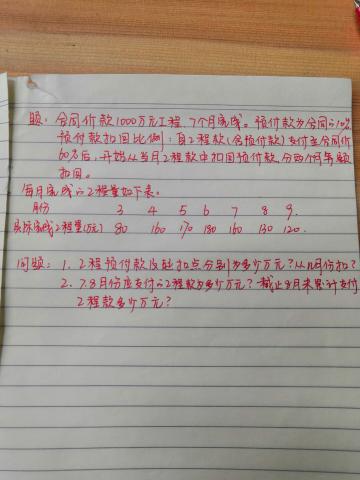 题: 合同价款1000万元工程, 7个月完成。预付款为合同的10%
预付款扣回比例: 自工程款(含预付款)支付至合同价
60%后, 开始从当月工程款中扣回预付款, 分两个月等额
扣回。
每月完成的工程量如下表:
月份 3 4 5 6 7 8 9.
实际完成工程量(万元) 80 160 170 180 160 130 120.
问题: 1. 工程预付款及起扣点分别为多少万元? 从几月份扣?
2. 7.8月份应支付的工程款为多少万元? 截止8月末累计支付
工程款多少万元?